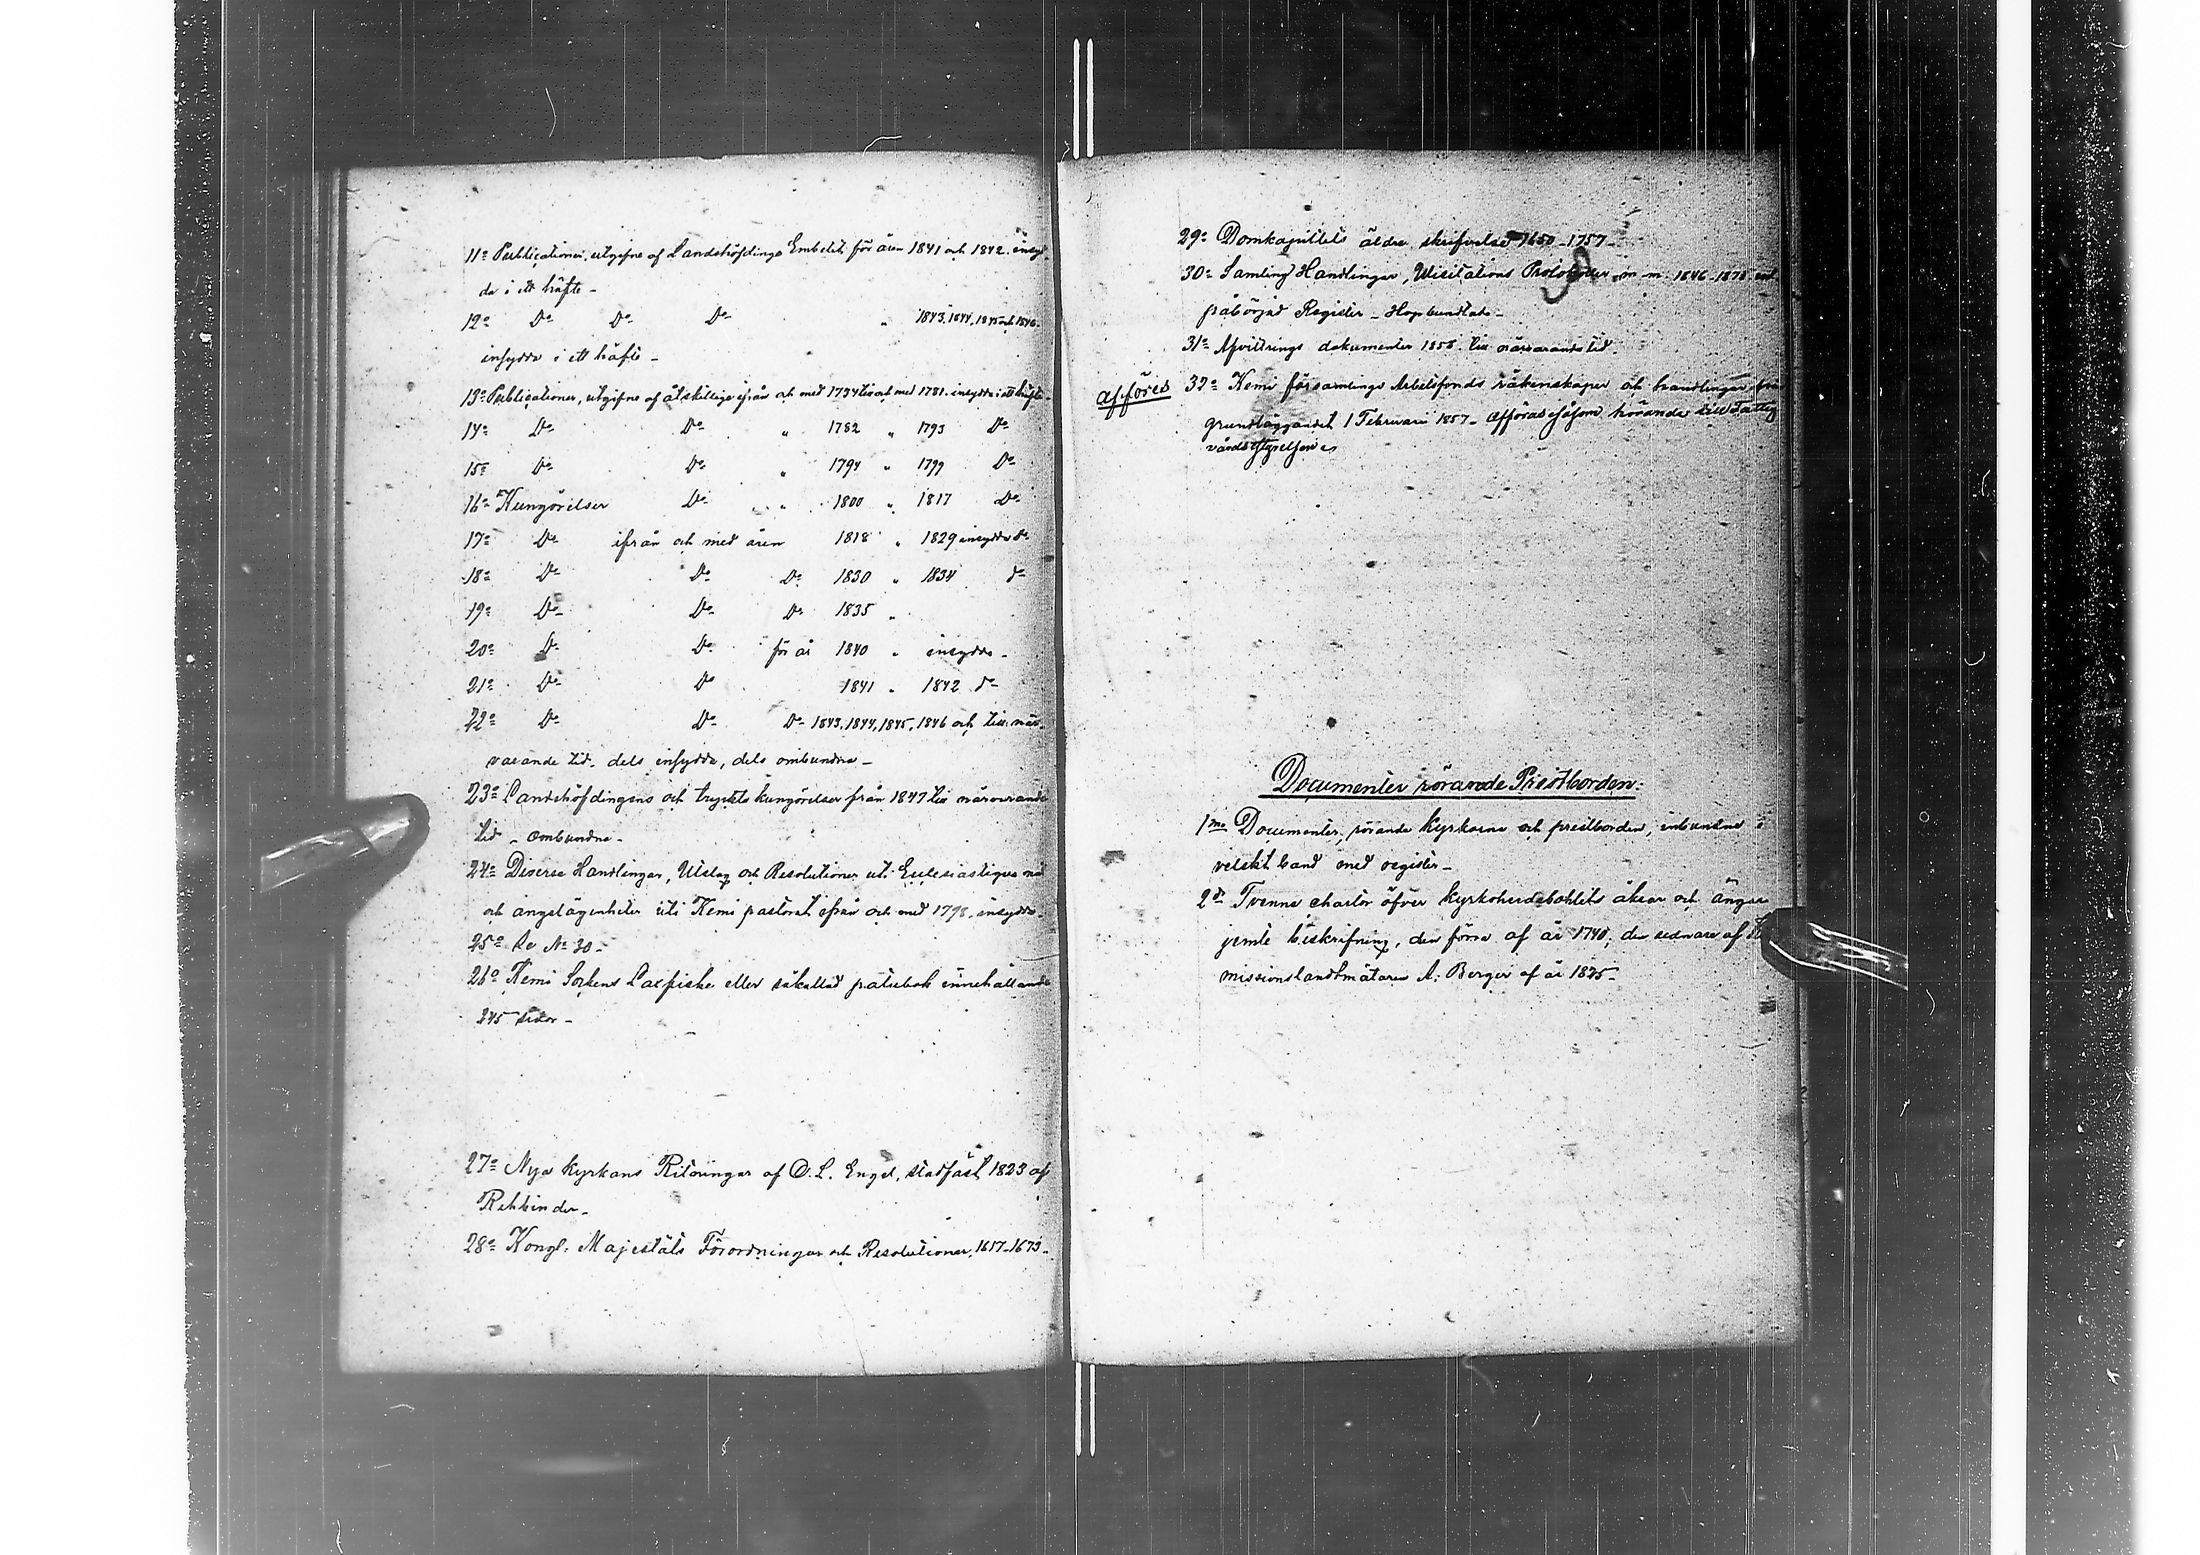 11o Publicationer, utgifne af Landshöfdinge Embetet för åren 1841 och 1842. insyd-
da i ett häfte -
12o Do Do Do „ 1843, 1844, 1845 och 1846.
insydda i ett häfte -
13o Publicationer, utgifne af åtskillige ifrån och med 1734 till och med 1781. insydda i ett häfte
14o Do Do „ 1782 „ 1793 Do
15o Do Do „ 1794 „ 1799 Do
16o Kungörelser Do „ 1800 „ 1817 Do
17o Do ifrån och med åren 1818 „ 1829 insydda do
18o Do Do Do 1830 „ 1834 do
19o Do Do Do 1835 „
20o Do Do för år 1840 „ insydda -
21o Do Do 1841 „ 1842 do
22o Do Do Do 1843, 1844, 1845, 1846 och till när-
varande tid, dels insydda, dels ombundna -
23o Landshöfdingens och tryckta kungörelser från 1847 till närvarande
tid - ombundna -
24o Diverse Handlingar, Utslag och Resolutioner uti Ecclesiastique mål
och angelägenheter uti Kemi pastorat ifrån och med 1798, insydda.
25o Se No 30 -
26o Kemi Sockens Laxfiske eller såkallad patubok innehållande
245 sidor -
27o Nya kyrkans Ritningar af C. L. Engel, stadfäst 1823 af
Rehbinder -
28o Kongl. Majestäts Förordningar och Resolutioner, 1617-1673 -
29o Domkapitlets äldre skrifvelser 1650-1757 -
30o Samling Handlingar, Visitations Protokoller m. m. 1846-1878 med
påbörjad Register - Hopbundtade -
31o Afvittrings dokumenter 1858 till närvarande tid.
afföres 32o Kemi församlings Arbetsfonds räkenskaper och handlingar från
grundläggandet 1 Februari 1857 - afföras såsom hörande till Fattig
vårdsstyrelsen
Documenter rörande Prestborden:
1mo Documenter, rörande kyrkorne och prestborden, inbundne i
velskt band med register -
2do Tvenne chartor öfver kyrkoherdebohlets åkrar och ängar
jemte beskrifning, den förra af år 1740, den sednare af
missionslandtmätaren A. Berger af år 1875 -